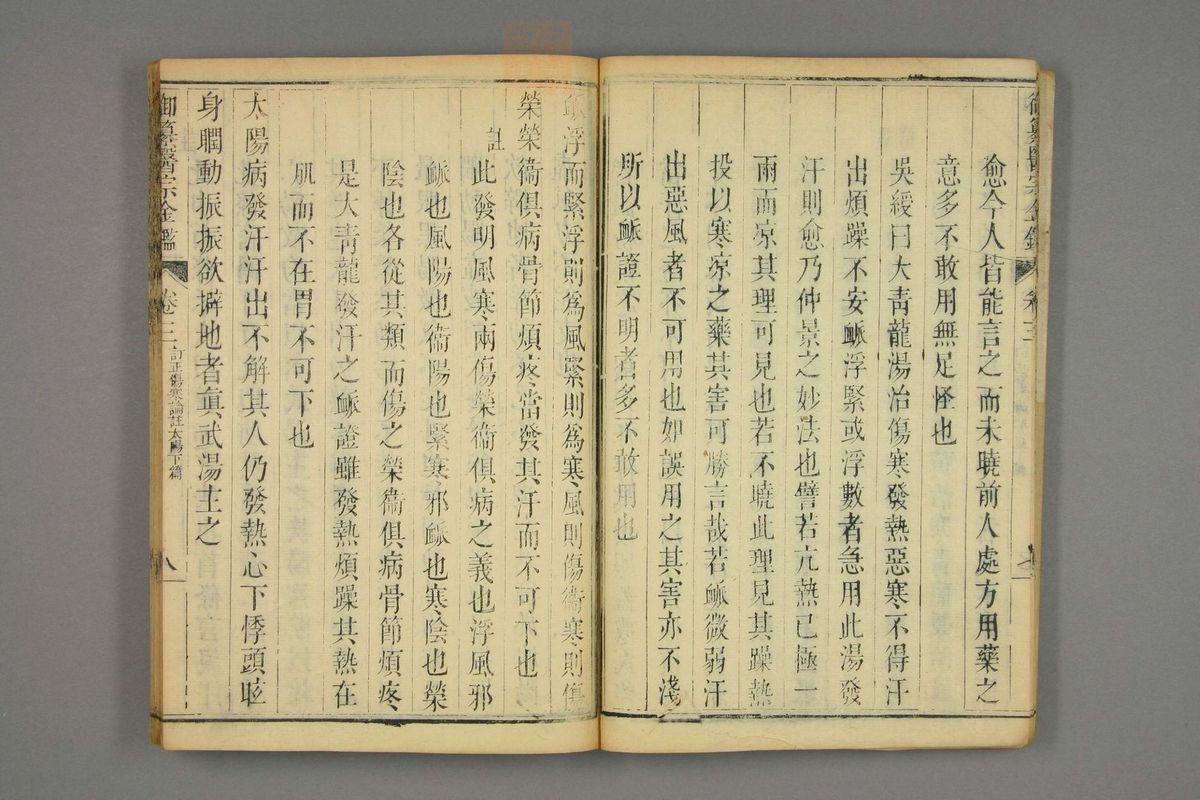 御纂醫宗金鑑 卷三
愈今人皆能言之而未曉前人處方用藥之
意多不敢用無足怪也
吳綬曰大青龍湯治傷寒發熱惡寒不得汗
出煩躁不安脈浮緊或浮數者急用此湯發
汗則愈乃仲景之妙法也譬若亢熱已極一
雨而凉其理可見也若不曉此理見其躁熱
投以寒凉之藥其害可勝言哉若脈微弱汗
出惡風者不可用也如誤用之其害亦不淺
所以脈證不明者多不敢用也
脈浮而緊浮則爲風緊則爲寒風則傷衞寒則傷
榮榮衞俱病骨節煩疼當發其汗而不可下也
註此發明風寒兩傷榮衞俱病之義也浮風邪
脈也風陽也衞陽也緊寒邪脈也寒陰也榮
陰也各從其類而傷之榮衞俱病骨節煩疼
是大青龍發汗之脈證雖發熱煩躁其熱在
肌而不在胃不可下也
太陽病發汗汗出不解其人仍發熱心下悸頭眩
身瞤動振振欲擗地者眞武湯主之
御纂醫宗金鑑 卷三 訂正傷寒論註太陽下篇 八